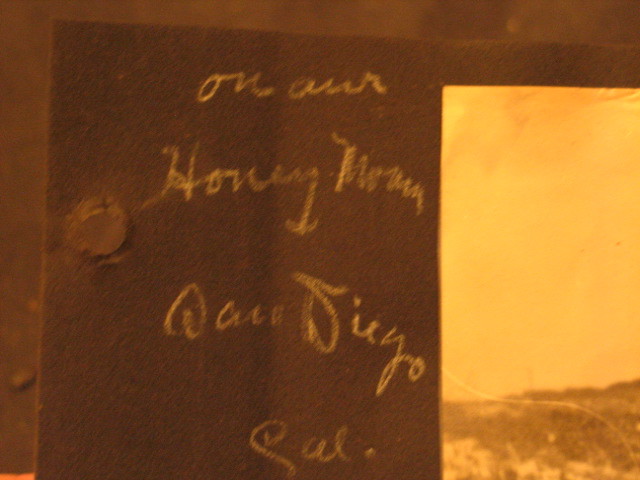 on our
Honey Moon
San Diego
Cal.